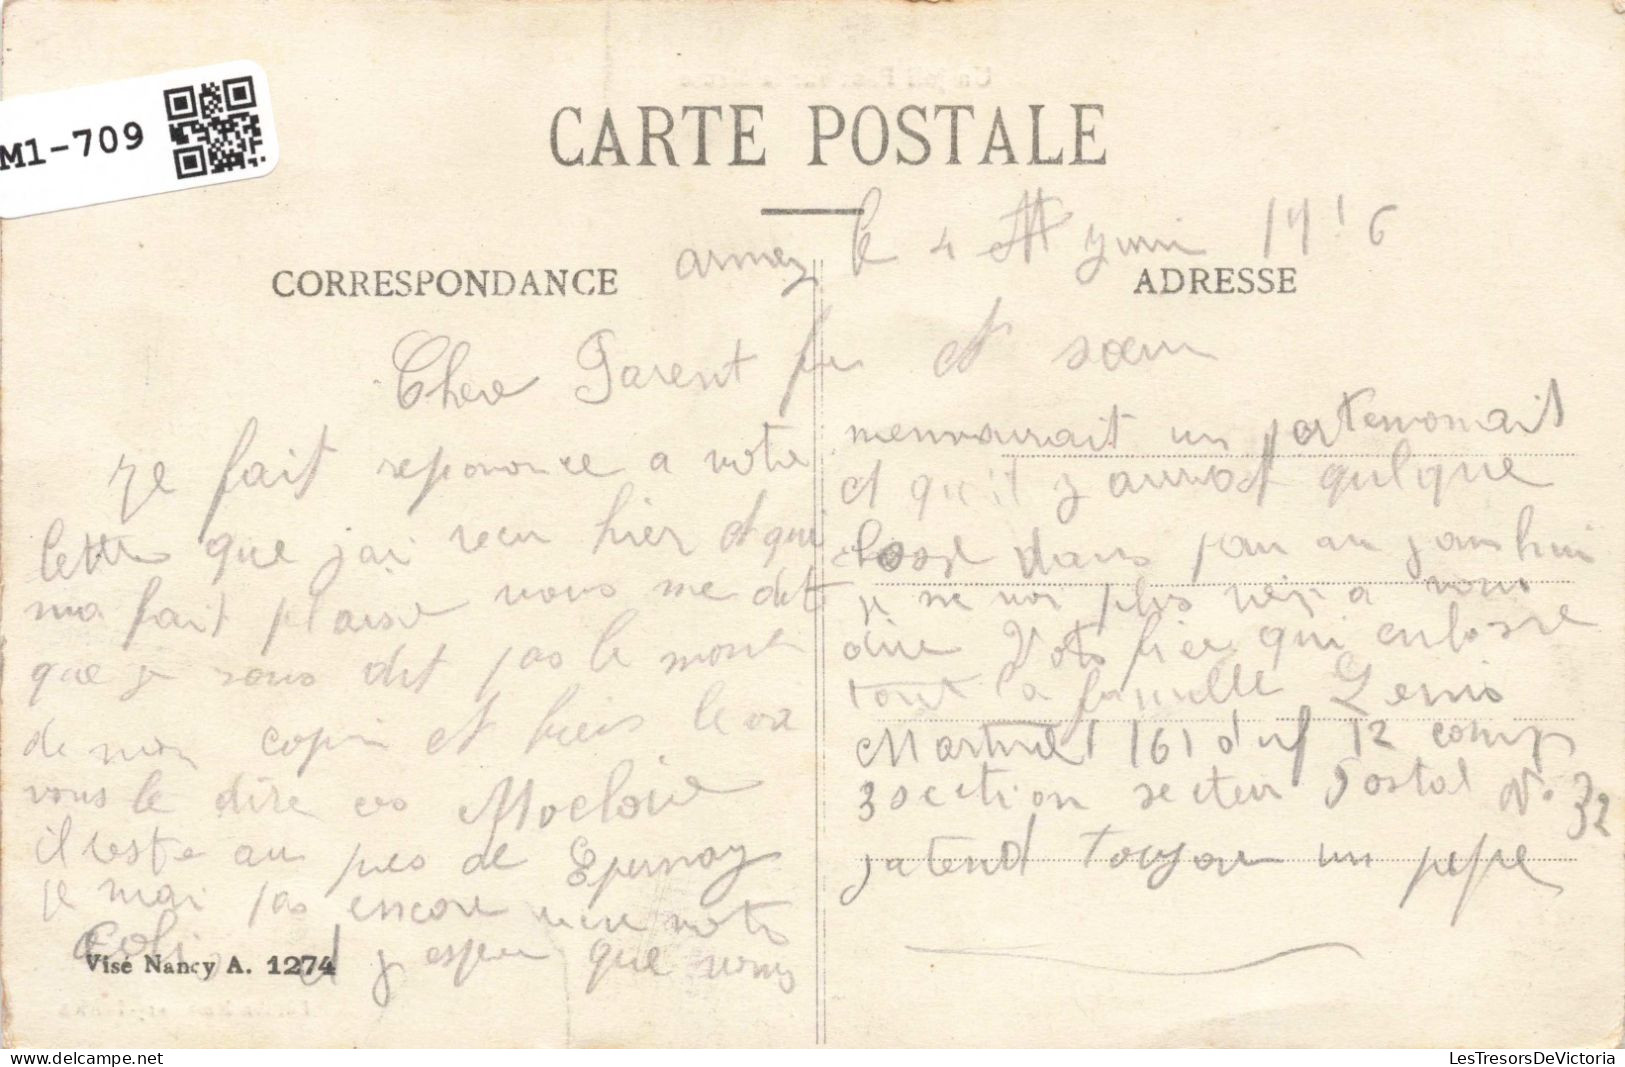 M1-709
CARTE POSTALE
le 4 juin 1916
CORRESPONDANCE
ADRESSE
Chere Parent et sœur
Je fait reponce a votre
lettre que jai recu hier et qui
ma fait plaisir vous me dit
que je vous dit pas le mort
de mon copin et bien
vous le dire
il reste au pres de Epernay
je mai pas encore recu votre
colis et j espere que vous
Visé Nancy A. 1274
un portemonait
et qu il y aurrait qulque
chosse dans aujourhui
je ne voi plus rien a vous
dire Votre qui enbrasse
tout la famille
161 d inf 12 comp
3 section secteur Postal No 32
jatend toujour un pepe
LesTresorsDeVictoria